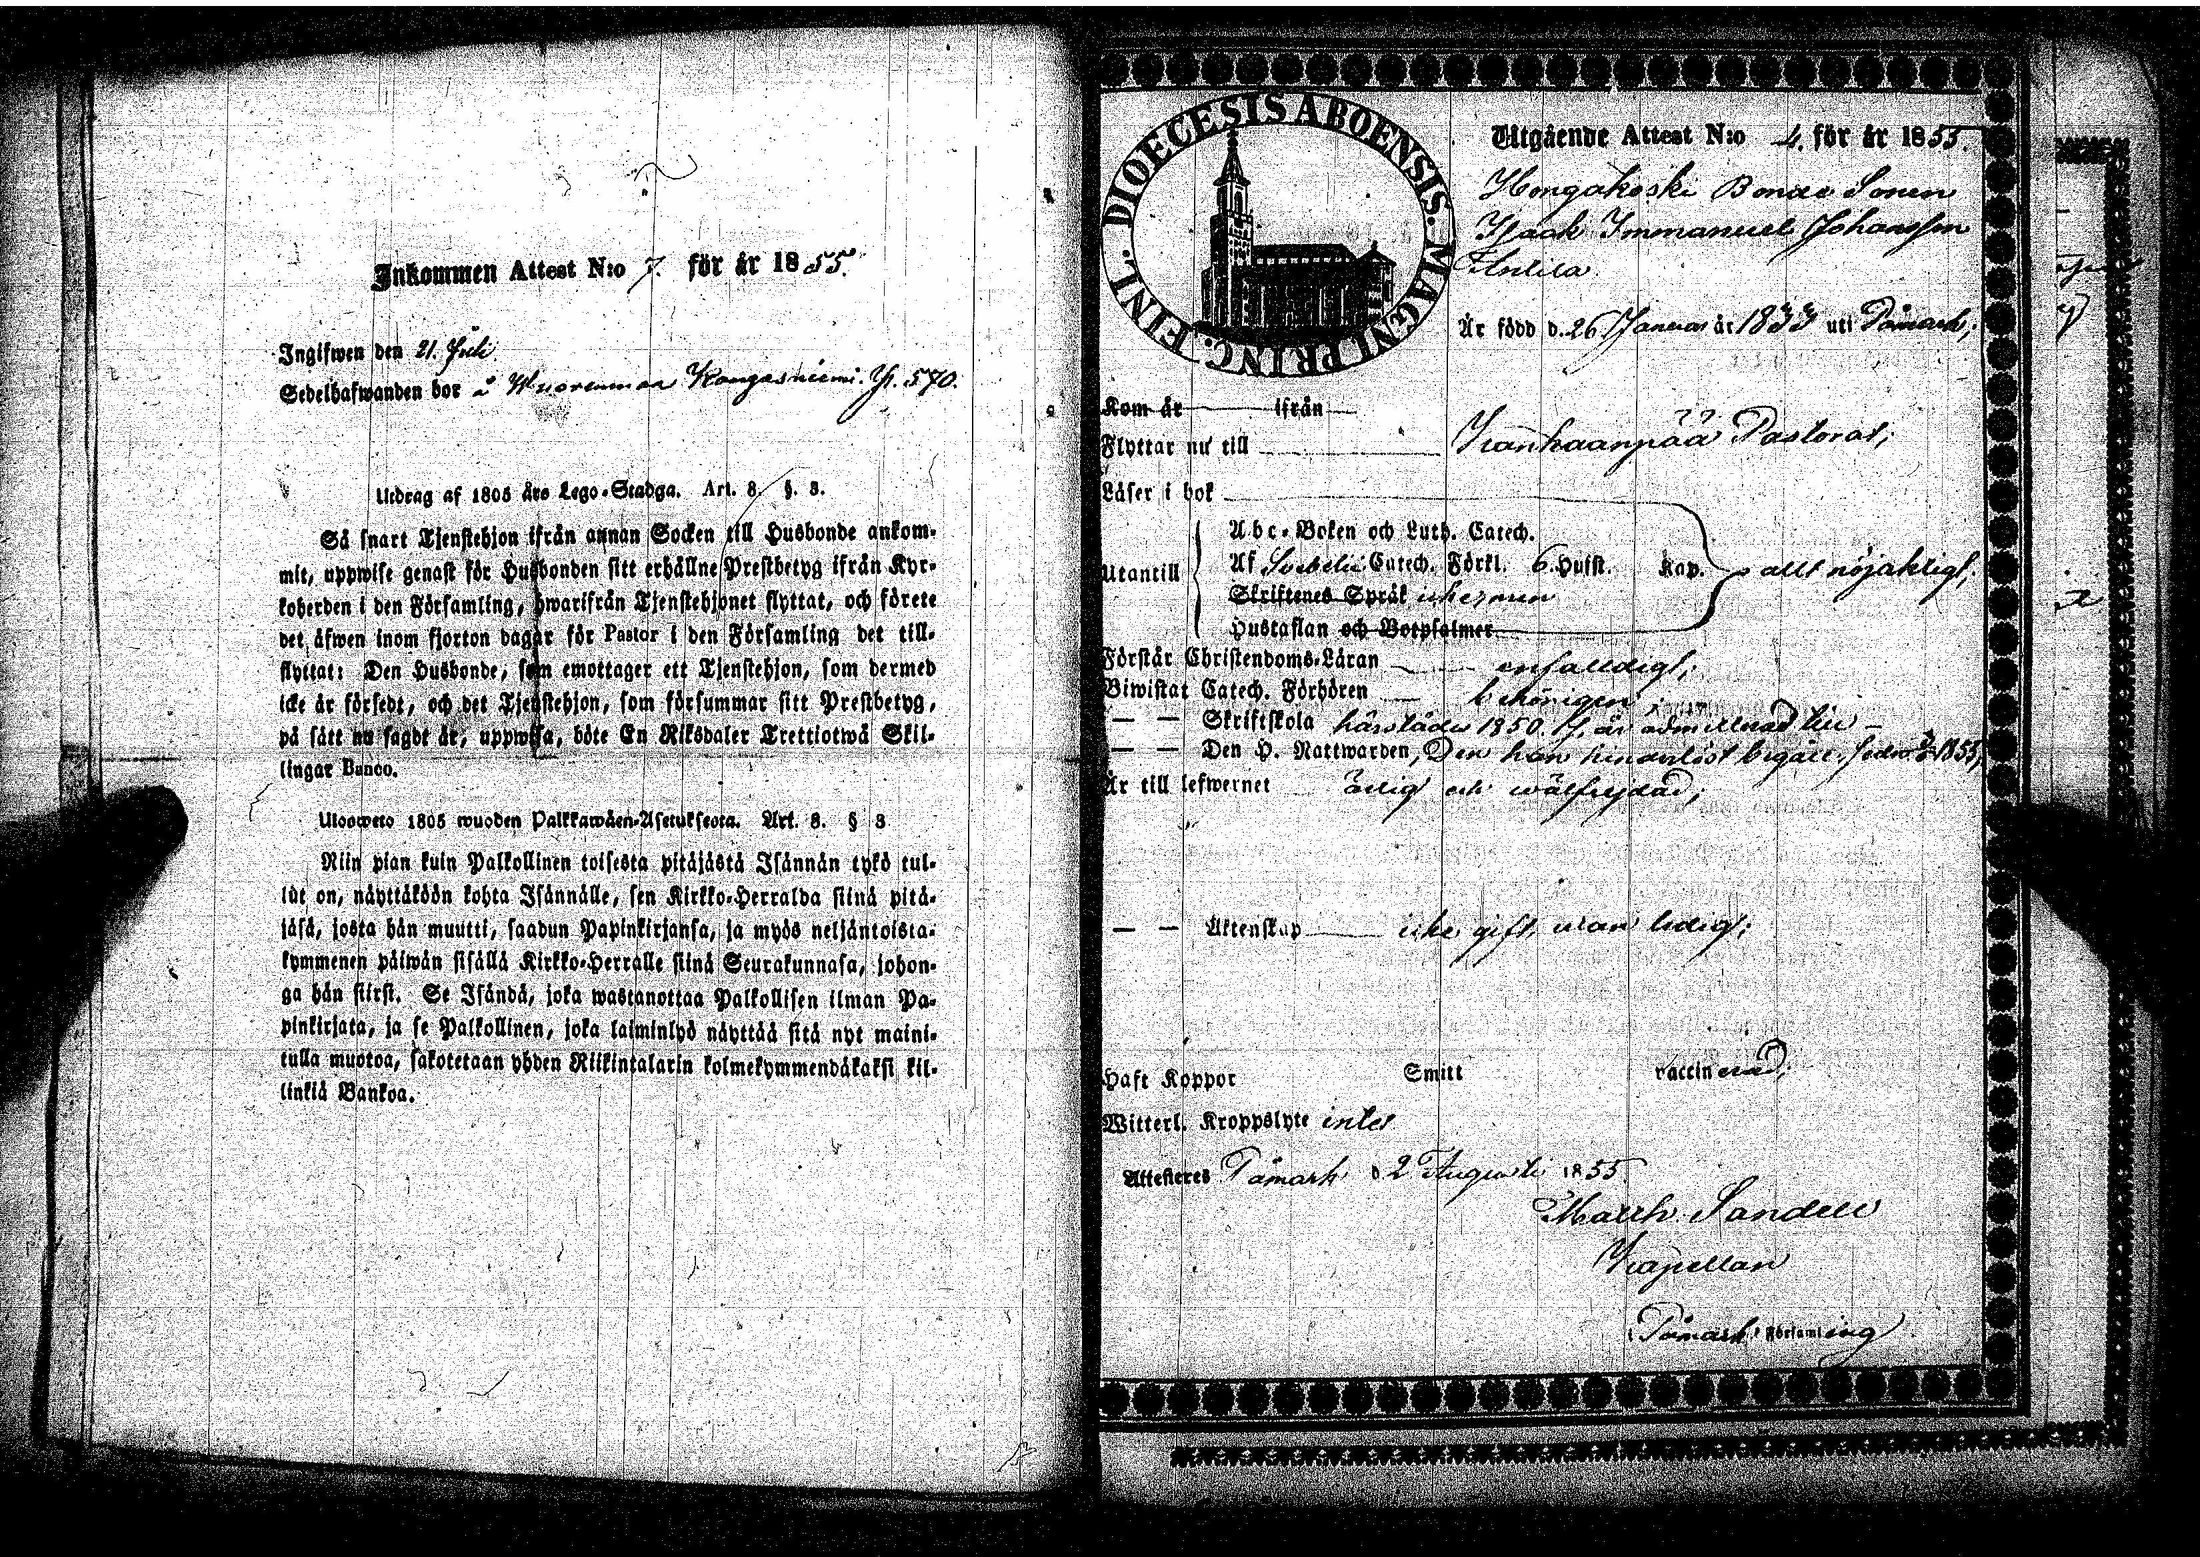 Inkommen Attest N:o 7. för år 1855.
Ingifwen den 21. Juli
Sedelhafwanden bor å Wuorenmaa Kangasniemi. P. 570.
Utdrag af 1805 års Lego-Stadga. Art. 8. §. 3.
Så snart Tjenstehjon ifrån annan Socken till Husbonde ankom-
mit, uppwise genast för Husbonden sitt erhållne Prestbetyg ifrån Kyr-
koherden i den Församling, hwarifrån Tjenstehjonet flyttat, och förete
det äfwen inom fjorton dagar för Pastor i den Församling det till-
flyttat: Den Husbonde, som emottager ett Tjenstehjon, som dermed
icke är försedt, och det Tjenstehjon, som försummar sitt Prestbetyg,
på sätt nu sagdt är, uppwisa, böte En Riksdaler Trettiotwå Skil-
lingar Banco.
Ulosweto 1805 wuoden Palkkawäen-Asetuksesta. Art. 8. § 3
Niin pian kuin Palkollinen toisesta pitäjästä Isännän tykö tul-
lut on, näyttäköön kohta Isännälle, sen Kirkko-Herralda siinä pitä-
jäsä, josta hän muutti, saadun Papinkirjansa, ja myös neljäntoista-
kymmenen päiwän sisällä Kirkko-Herralle siinä Seurakunnasa, johon-
ga hän siirst. Se Isändä, joka wastanottaa Palkollisen ilman Pa-
pinkirjata, ja se Palkollinen, joka laiminlyö näyttää sitä nyt maini-
tulla muotoa, sakotetaan yhden Riikintalarin kolmekymmendäkaksi kil-
linkiä Bankoa.
DIOECESIS ABOENSIS. MAGNI PRINC. FINL.
Utgående Attest N:o 4. för år 1855.
Hongakoski Bonde Sonen
Isaak Immanuel Johansson
Antila
Är född d. 26 Januar år 1833 uti Påmark;
Kom år ifrån
Flyttar nu till Kankaanpää Pastorat;
Läser i bok
Abc-Boken och Luth. Catech.
Utantill Af Svebelii Catech. Förkl. 6 Hufst. Kap. allt nöjaktigt;
Skriftenes Språk
Hustaflan och Botpsalmer
Förstår Christendoms-Läran enfaldigt;
Biwistat Catech. Förhören behörigen;
— — Skriftskola härstädes 1850. är admitterad till
— — Den H. Nattwarden, Den han begått 1855;
Är till lefwernet ärlig och wälfrejdad;
— — Äktenskap icke gift, utan ledig;
Haft Koppor Smitt vaccinerad;
Witterl. Kroppslyte intet
Attesteres Påmark d 2 Augusti 1855.
Matth. Sandell
Kapellan
Påmark Församling